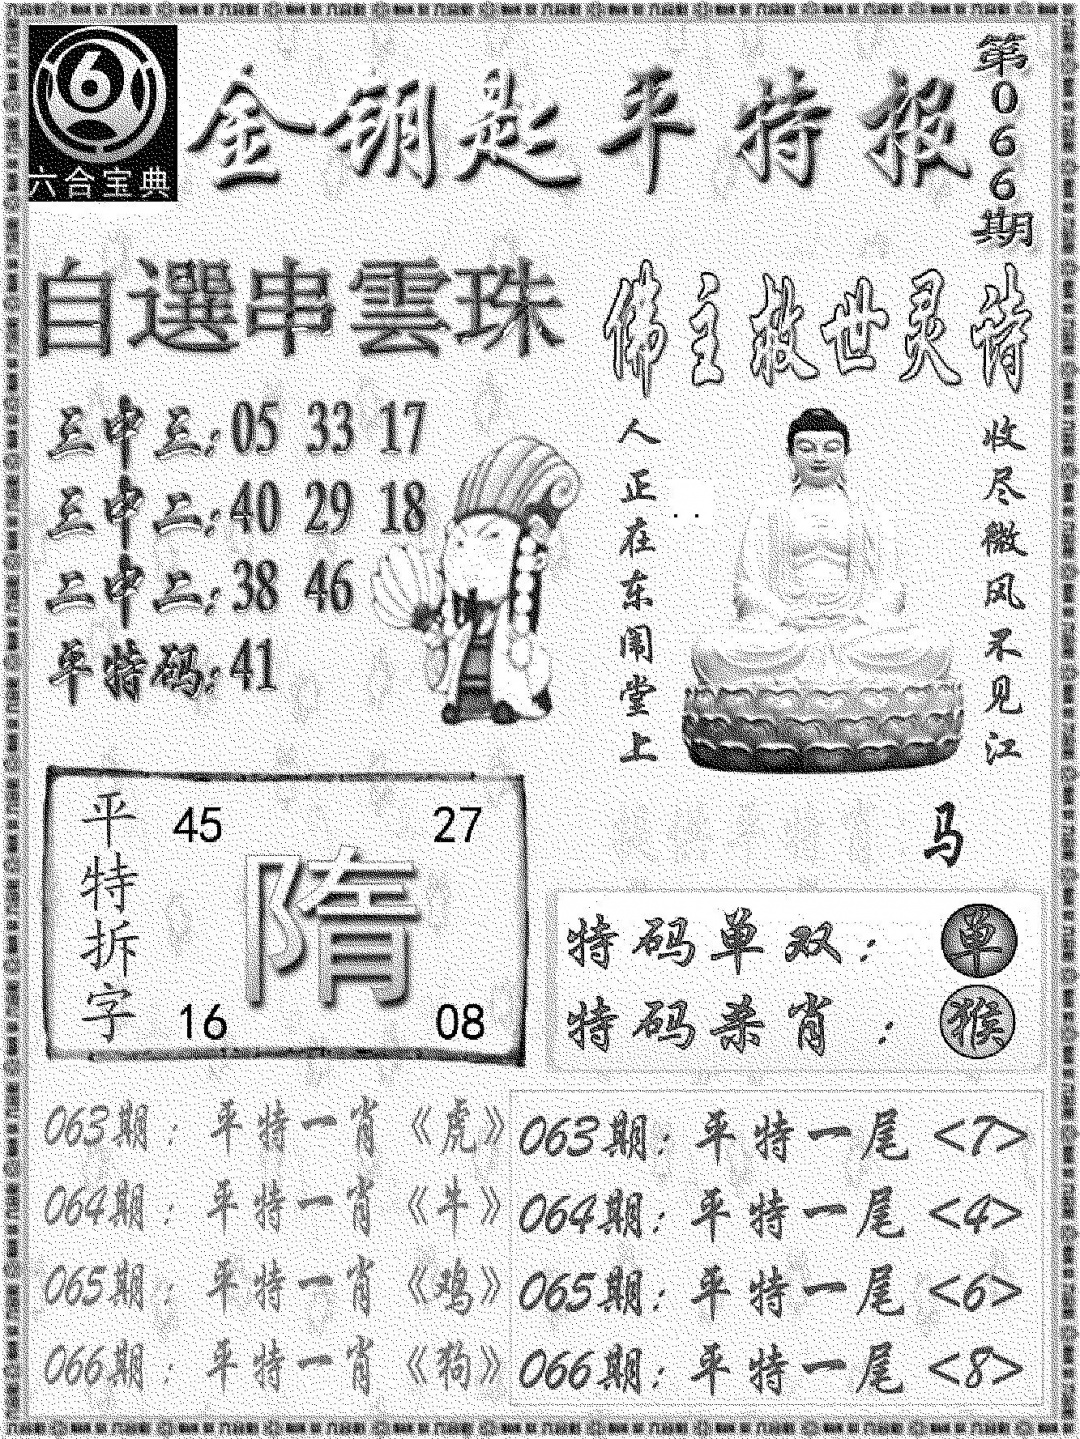 6
六合宝典
金钥匙平特报
第066期
自選串雲珠
三中三:05 33 17
三中二:40 29 18
二中二:38 46
平特码:41
佛主救世灵诗
收尽微风不见江
人正在东阁堂上
马
平特拆字
45 27
隋
16 08
特码单双:单
特码杀肖:猴
063期:平特一肖《虎》
064期:平特一肖《牛》
065期:平特一肖《鸡》
066期:平特一肖《狗》
063期:平特一尾<7>
064期:平特一尾<4>
065期:平特一尾<6>
066期:平特一尾<8>